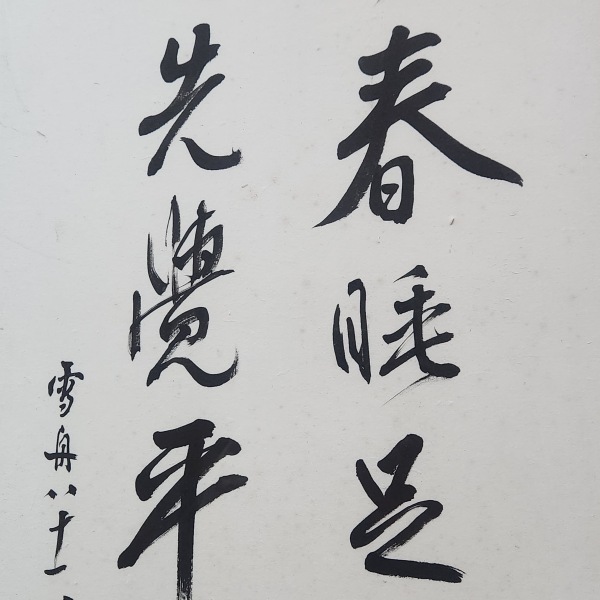 春睡足
先覺平
雪舟八十一